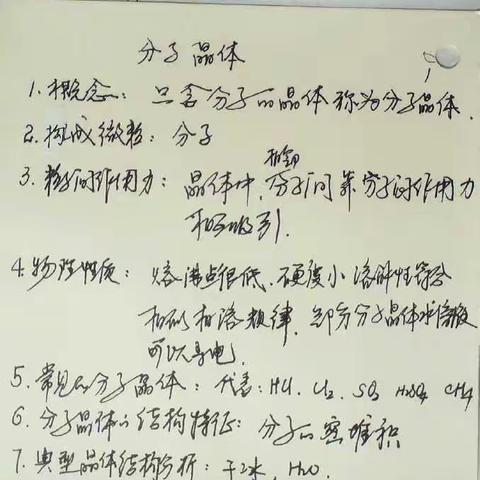 分子晶体
1.概念：只含分子的晶体称为分子晶体.
2.构成微粒：分子
相邻
3.粒子间作用力：晶体中,分子间靠分子间作用力
相互吸引.
4.物理性质：熔沸点很低、硬度小 溶解性符合
相似相溶规律、部分分子晶体水溶液
可以导电.
5.常见的分子晶体：代表:HCl、Cl2、SO3 H2SO4 CH4
6.分子晶体的结构特征：分子的密堆积
7.典型晶体结构分析：干冰、H2O.